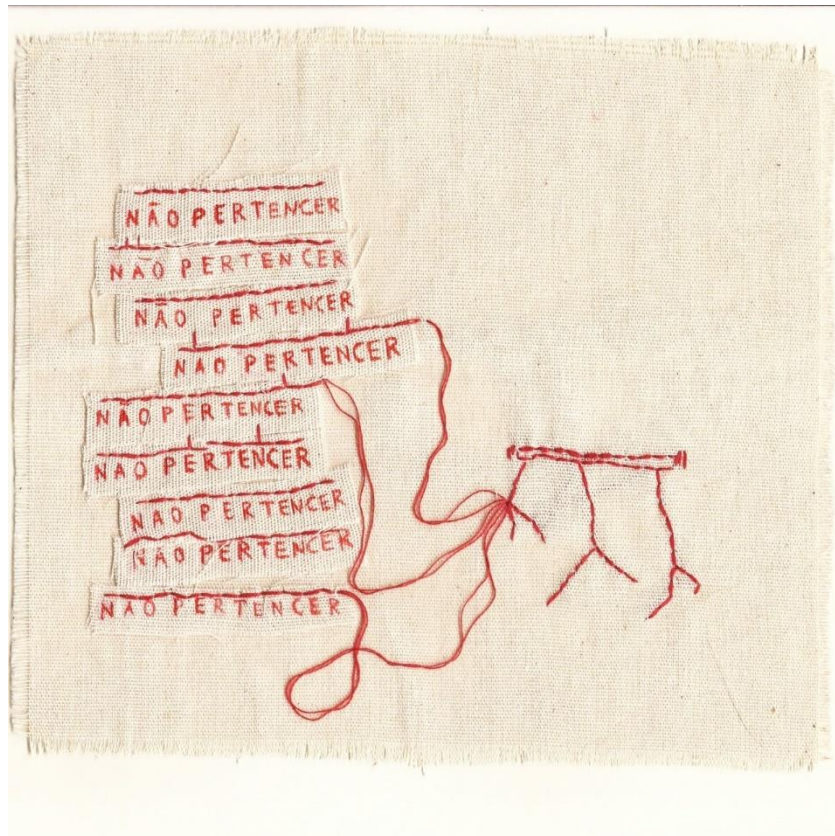 NÃO PERTENCER
NÃO PERTENCER
NÃO PERTENCER
NÃO PERTENCER
NÃO PERTENCER
NÃO PERTENCER
NÃO PERTENCER
NÃO PERTENCER
NÃO PERTENCER